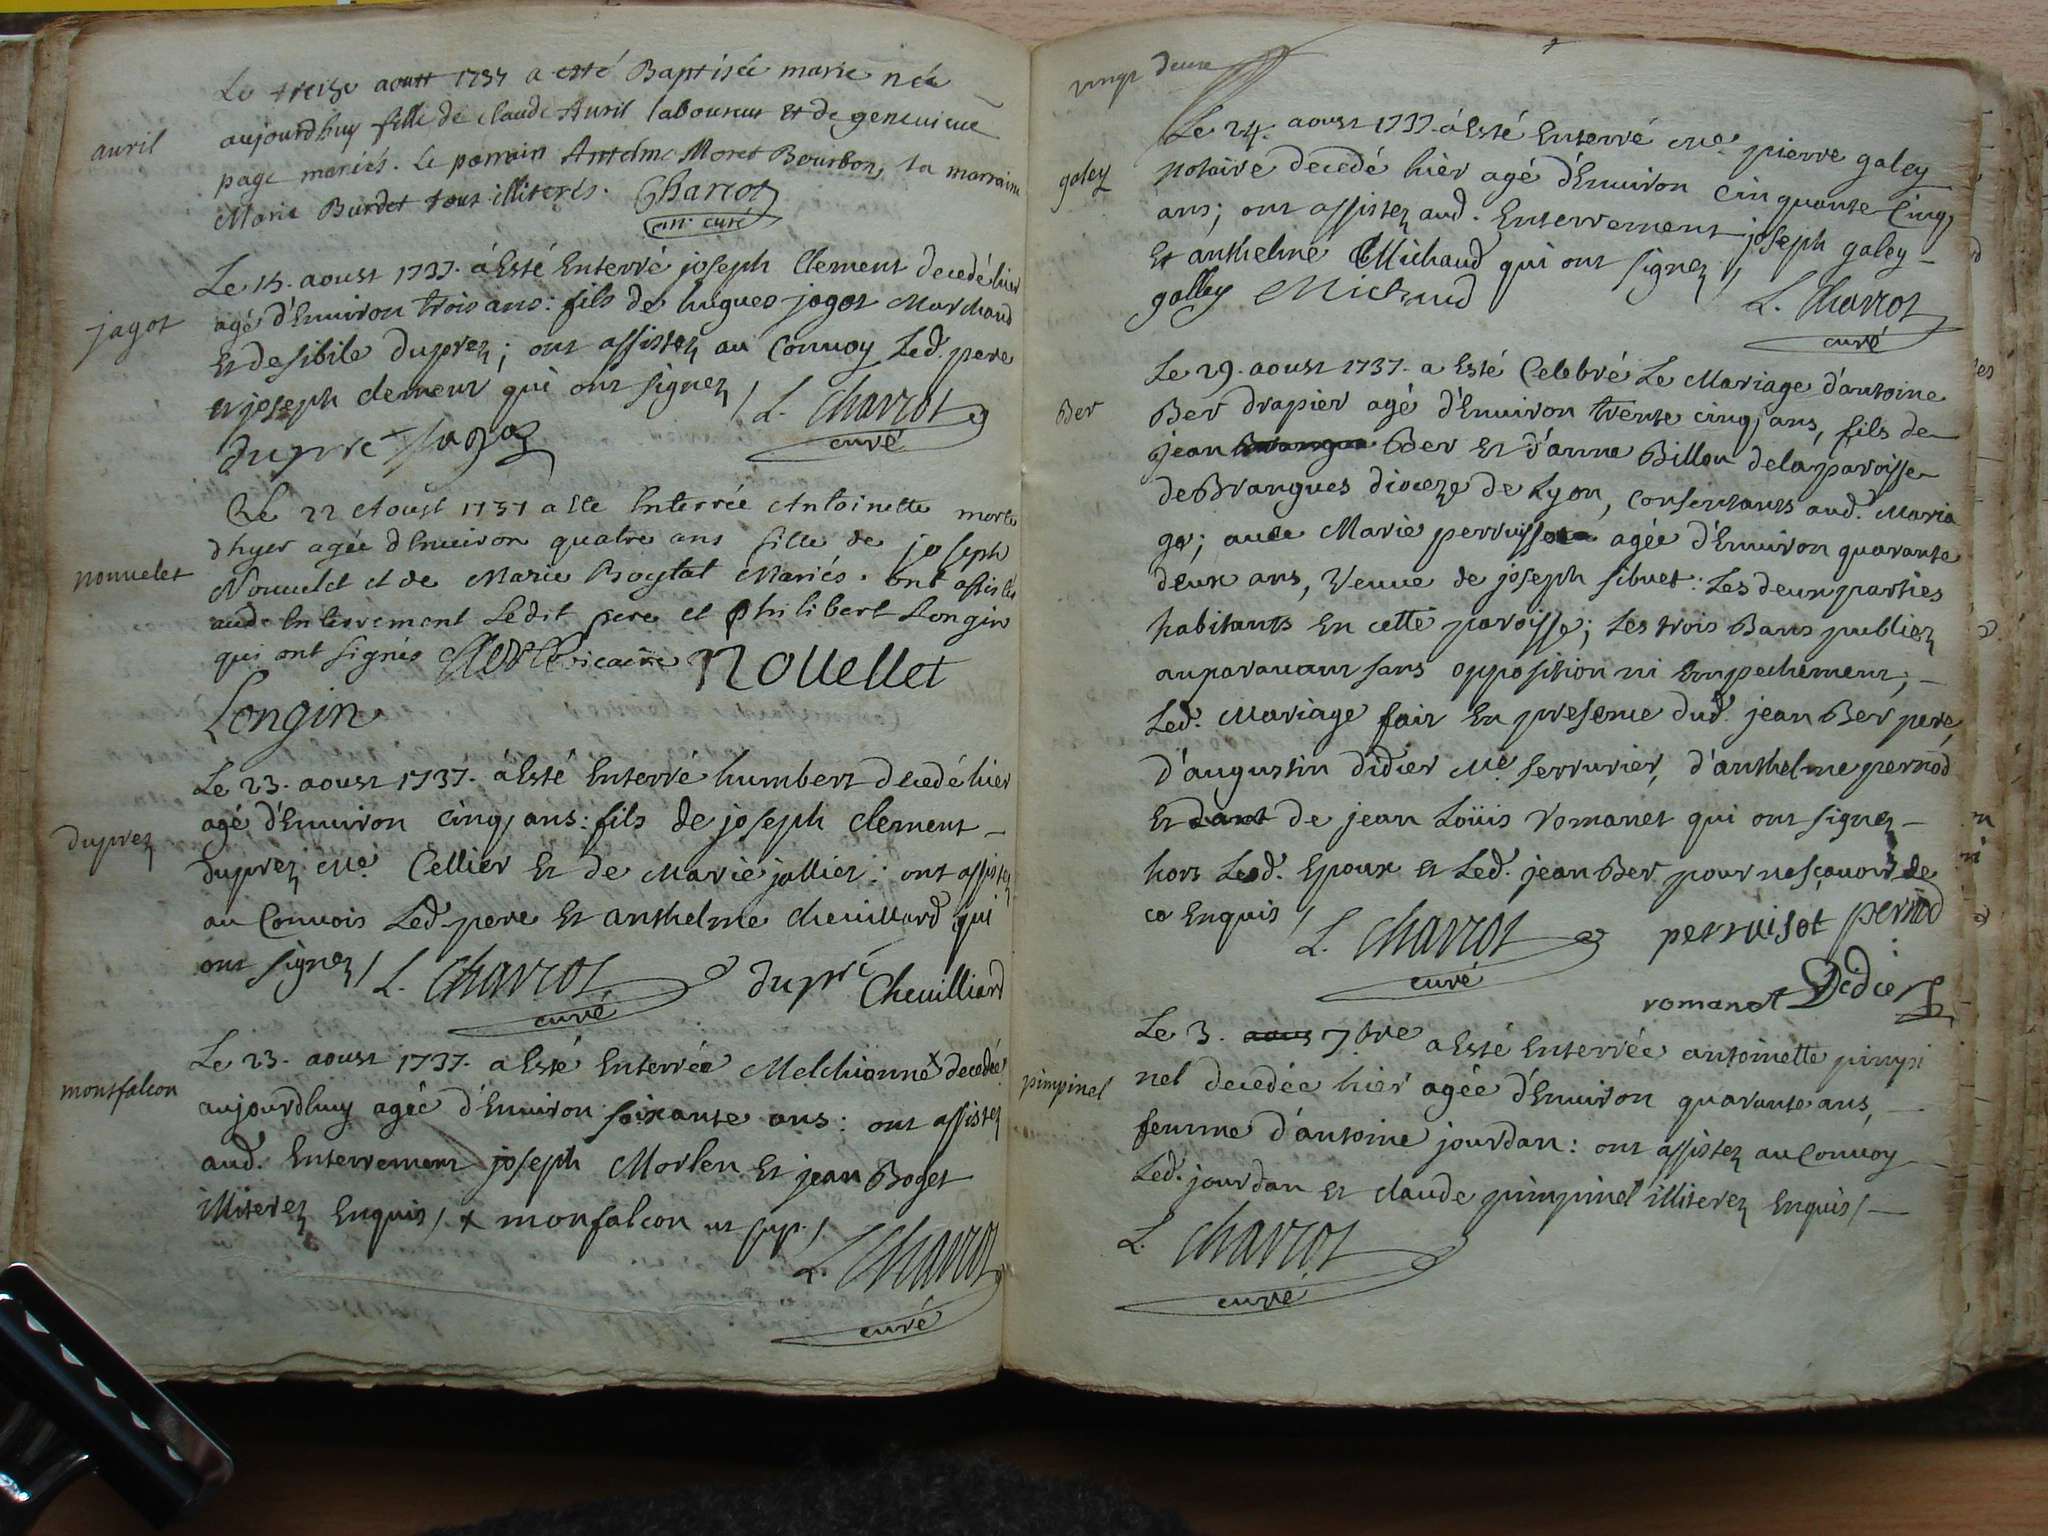 Le treize aoust 1737 a esté Baptisée marie née
avril
aujourdhuy fille de claude Avril laboureur et de genevieve
page mariés. Le parrain Antelme Moret Bourbon, la marraine
Marie Burdet tous illiterés. Charcot
curé
Le 15. aoust 1737. à Esté Enterré joseph Clement decedé hier
jagot
agé d'Environ trois ans: fils de hugues jagot Marchand
et de sibile duprez; ont assistez au Convoy Led. pere
et joseph clement qui ont signez / L. Charcot
curé
dupré jagot
Le 22 Aoust 1737 a ete Enterrée Antoinette morte
dhyer agée d'Environ quatre ans fille de joseph
nouvelet
Nouvelet et de Marie Boytat Mariés. ont assistés
aud. Enterrement Ledit pere et philibert Longin
qui ont signés vicaire Nouellet
Longin
Le 23. aoust 1737. à Esté Enterré humbert decedé hier
agé d'Environ cinq ans: fils de joseph clement
duprez
duprez Me. Cellier Et de Marie jallier: ont assistez
au Convois Led. pere Et anthelme chevillard qui
ont signez / L. Charcot dupré Chevilliard
curé
Le 23. aoust 1737. a Esté Enterrée Melchionne x decedée
montfalcon
aujourdhuy agée d'Environ soixante ans: ont assistez
aud. Enterrement joseph Morlen Et jean Boget
illiterez Enquis / x monfalcon ut sup. /
L. Charcot
curé
vingt deux
Le 24. aoust 1737. à Esté Enterré Me. pierre galey
galey
notaire decedé hier agé d'Environ cinquante cinq
ans; ont assistez aud. Enterrement joseph galey
Et anthelme Michaud qui ont signez /
galley Michaud L. Charcot
curé
Le 29. aoust 1737. a Esté Celebré Le Mariage d'antoine
Ber
Ber drapier agé d'Environ trente cinq ans, fils de
jean Ber Et d'anne Billon de la paroisse
de Brangues dioceze de Lyon, Consentants aud. Maria
ge; avec Marie perruisset agée d'Environ quarante
deux ans, Veuve de joseph sibuet: Les deux parties
habitants En cette paroisse; Les trois Bans publiez
auparavant sans opposition ni Empechement;
Led. Mariage fait En presence dud. jean Ber pere,
d'augustin didier Me. serrurier, d'anthelme pernod
Et de jean Loüis romanet qui ont signez
hors Lesd. Epoux et Led. jean Ber pour ne sçavoir de
ce Enquis / L. Charcot perruisot pernod
curé
romanet Didier
Le 3. 7bre a Esté Enterrée antoinette pimpi
pimpinel
nel decedée hier agée d'Environ quarante ans,
femme d'antoine jourdan: ont assistez au Convoy
Led. jourdan et claude pimpinel illiterez Enquis /
L. Charcot
curé